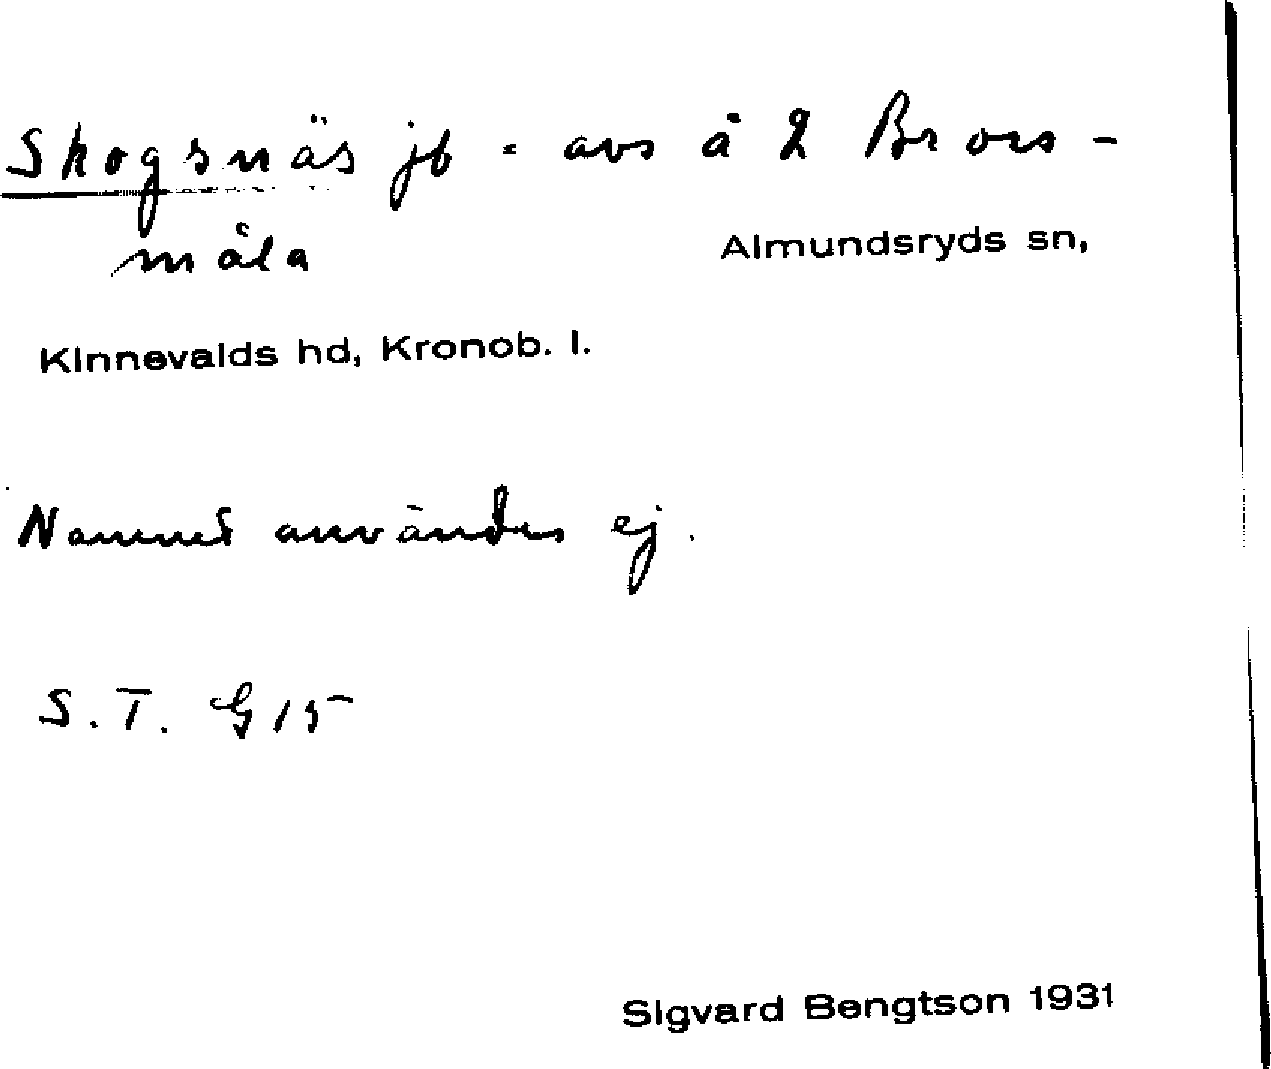 Skogsnäs jb = avs å 2 Brors-
måla
Almundsryds sn,
Kinnevalds hd, Kronob. l.
Namnet användes ej.
S. T. G 15
Sigvard Bengtson 1931